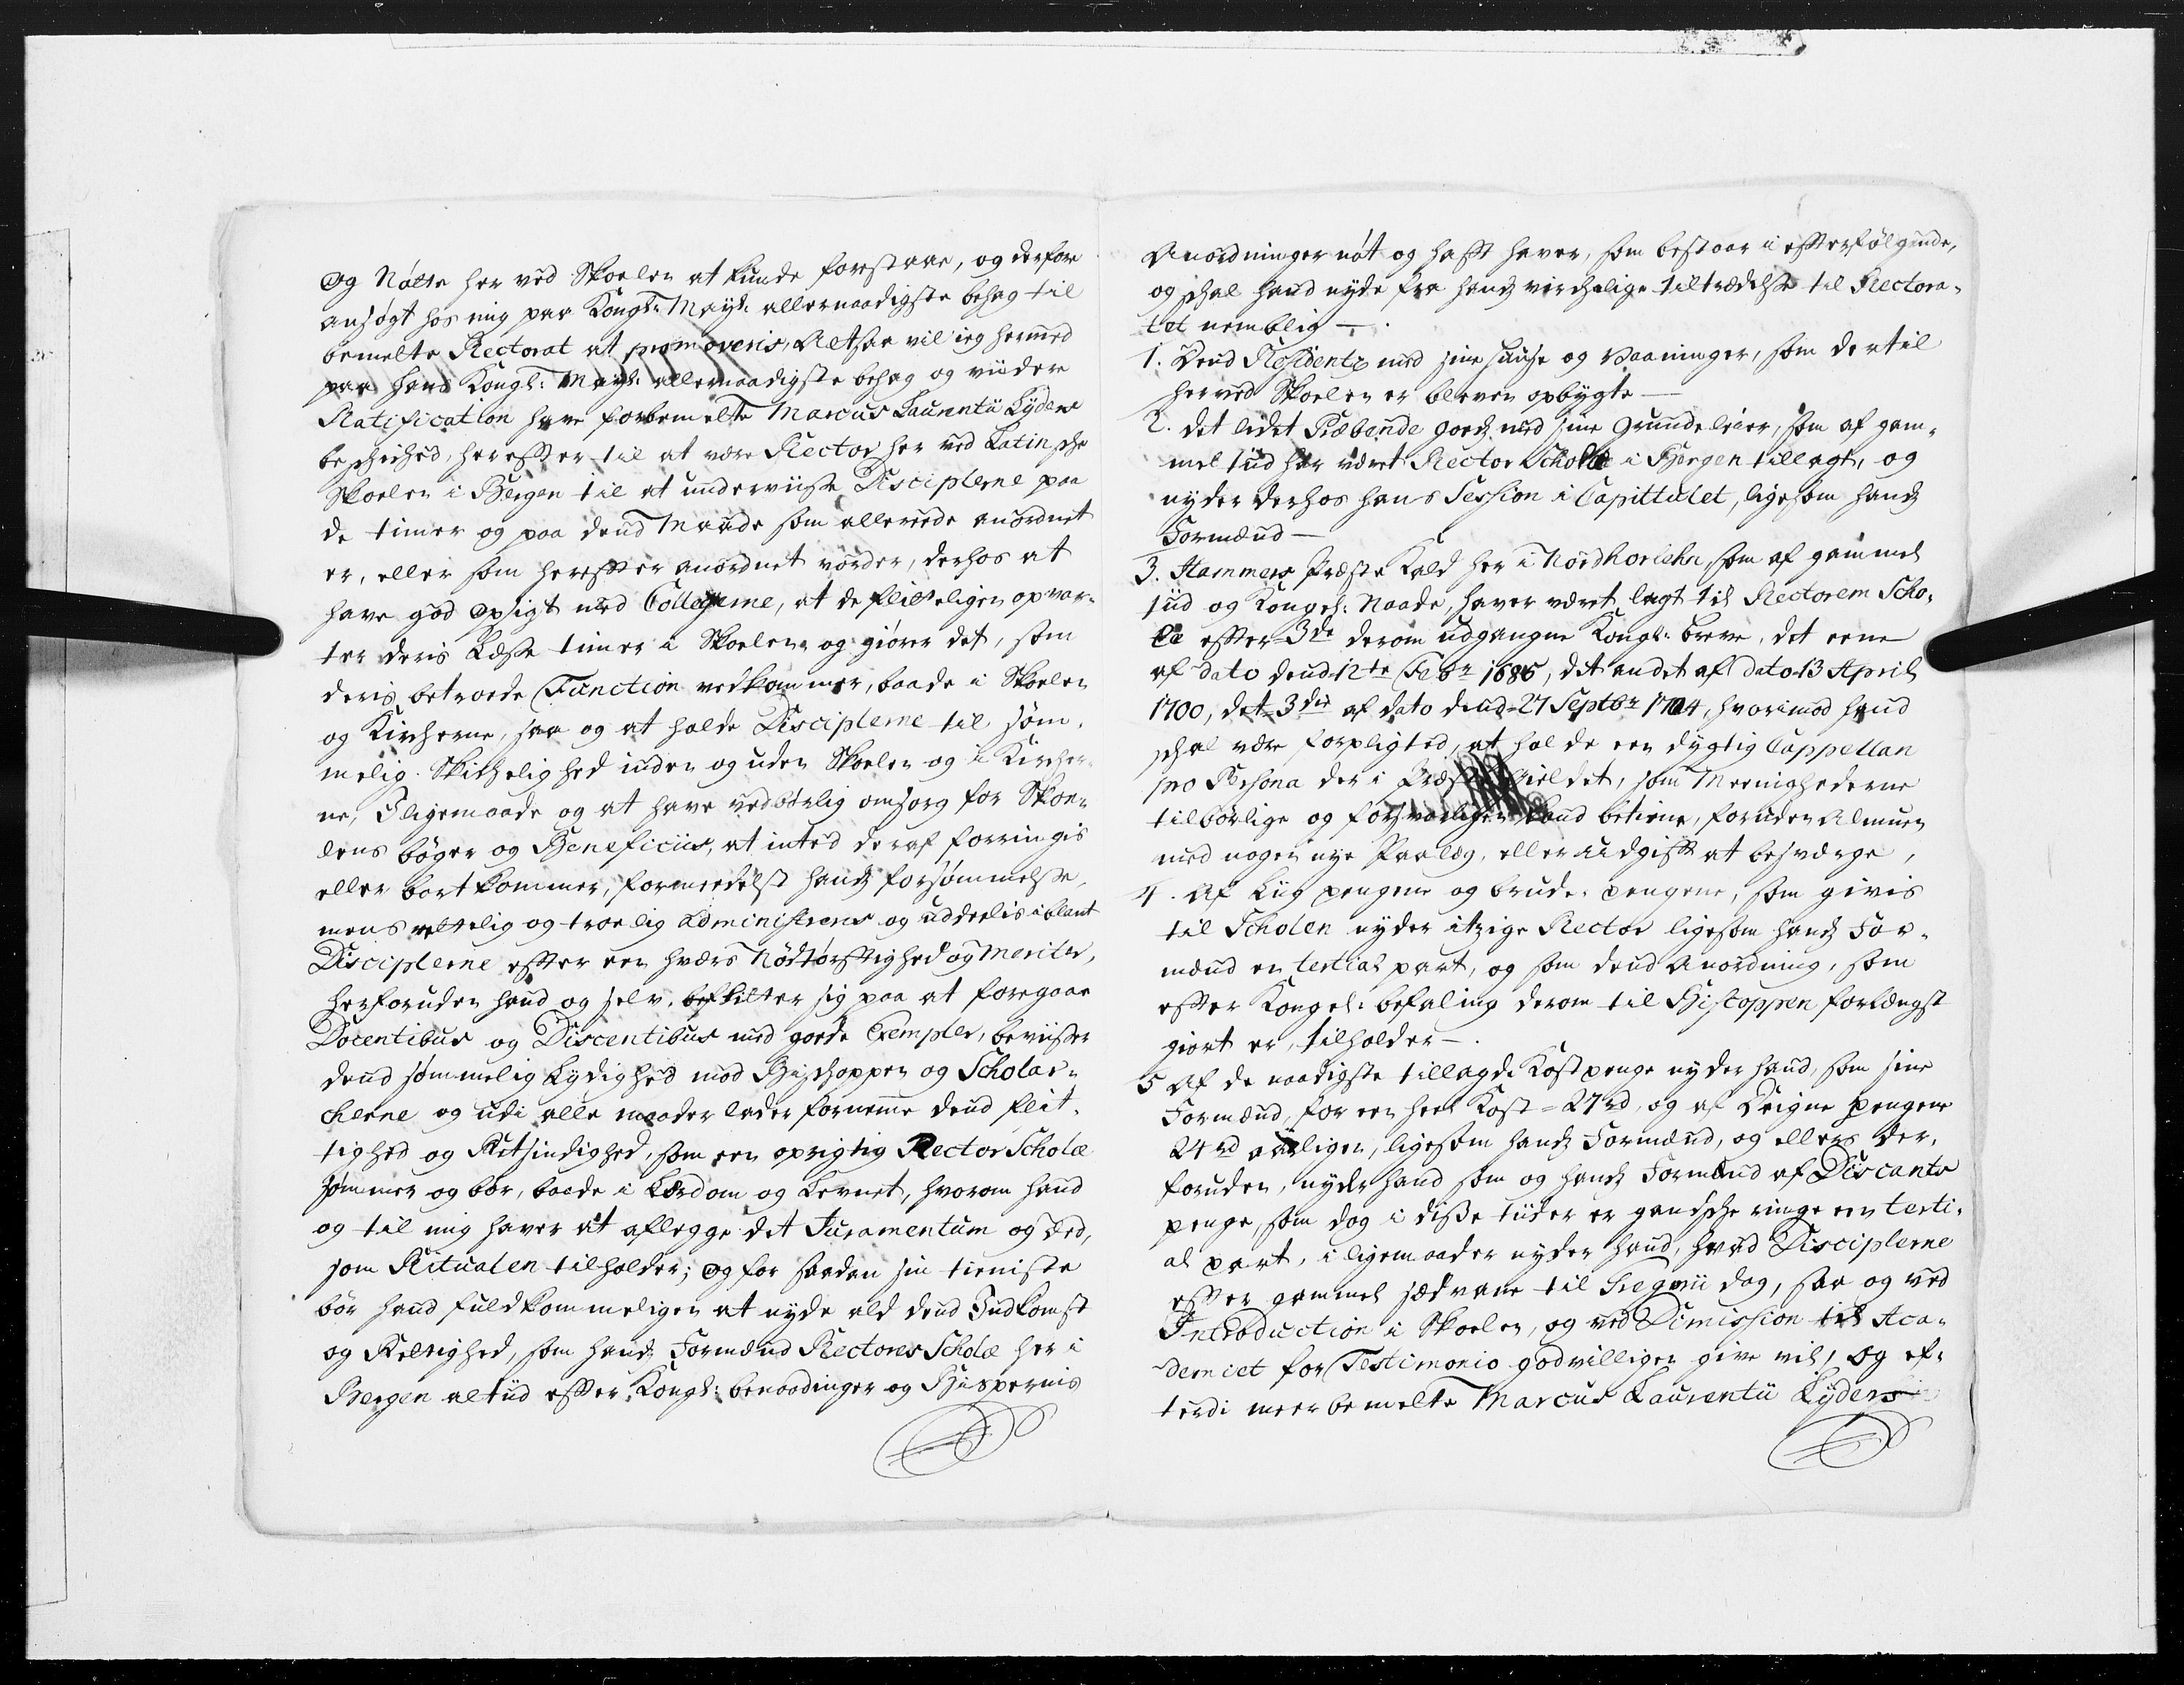 og Nøtte her ved Skoelen at kunde forestaae, og derfore
ansøgt hos mig paa Kongl: Mayt: allernaadigste behag til
bemelte Rectorat at promoveris, Altsaa vil ieg hermed
paa Hans Kongl: Mayt: allernaadigste behag og viidere
Ratification have forbemelte Marcus Laurentii Lÿders
beschiched, herefter til at være Rector her ved Latinsche
Skoelen i Bergen til at underviisse Disciplerne paa
de timer og paa dend Maade som allerede anordnet
er, eller som herefter anordnet vorder, derhos at
have god opsigt med Collegerne, at de flitteligen opvar-
ter deris Læsse timer i Skoelen og giører det, som
deris betroede Function vedkommer, baade i Skoelen
og Kircherne, saa og at holde Disciplerne til søm-
melig Skichelighed inden og uden Skoelen og i Kircher-
ne, Iligemaade og at have vedbørlig omsorg for Skoe-
lens bøger og Beneficiis, at inted deraf forringis
eller bortkommer, formedelst hands forsømmelse,
mens rettelig og troelig administreris og uddeelis iblant
Disciplerne efter een hvers Nødtørftighed og Meriter,
herforuden hand og selv beflitter sig paa at foregaae
Docentibus og Discentibus med goede Exempler, beviisser
dend sømmelig Lydighed mod Bischoppen og Scholar-
cherne og udi alle maader lader fornemme dend flit-
tighed og Retsindighed, som een oprigtig Rector Scholæ
sømmer og bør, baade i Lærdom og Levnet, hvorom hand
og til mig haver at aflegge det Juramentum og Eed,
som Ritualen tilholder; og for saadan sin tieniste
bør hand fuldkommeligen at nyde ald dend Indkomst
og Rettighed, som hands Formænd Rectores Scholæ her i
Bergen altiid efter Kongl: benaadinger og Bispernis
Anordninger nøt og haft haver, som bestaar i efterfølgende,
og schal hand nyde fra hands virchelige tiltrædelse til Rectora-
tet nemblig —.
1. Dend Residentz med sine Huuse og Vaaninger, som dertil
herved Skoelen er bleven opbygte —
2. det lidet Præbende goeds med sine Grundeleier, som af gam-
mel tiid har været Rector Scholæ i Bergen tillagt, og
nyder derhos hans Session i Capittulet, ligesom hands
Formænd —
3. Hammers Præste Kald her i Nordhorlehn, som af gammel
tiid og Kongel: Naade, haver været lagt til Rectorem Scho-
læ efter 3de derom udgangne Kongl: breve, det eene
af dato dend 12te Febr 1686, det andet af dato 13 April
1700, det 3die af dato dend 27 Septbr 1704, hvorimod hand
schal være forpligted, at holde een dygtig Cappellan
pro Persona der i Præstegieldet, som Meenighederne
tilbørlige og forsvarligen kand betiene, foruden Almuen
med nogen nye Paalæg, eller udgift at besværge,
4. Af Liig pengene og brude pengene, som givis
til Scholen nyder itzige Rector ligesom hands For-
mænd en tertial part, og som dend Anordning, som
efter Kongel: befaling derom til Biscoppen forlængst
giort er, tilholder —.
5 Af de naadigste tillagde Kostpenge nyder hand, som sine
Formænd, for een heel Kost = 27 rd, og af Deigne pengene
24 rd aarligen, ligesom hands Formænd, og ellers der-
foruden, nyder hand som og hands Formænd af Discante
penge, som dog i disse tiider er gandsche ringe een terti-
al part, i ligemaader nyder hand, hvad Disciplerne
efter gammel sædvane til Gregorii dag, saa og ved
Introduction i Skoelen, og ved Dimission til Aca-
demiet for Testimonio godvilligen give vil, Og ef-
terdi meerbemelte Marcus Laurentii Lÿders